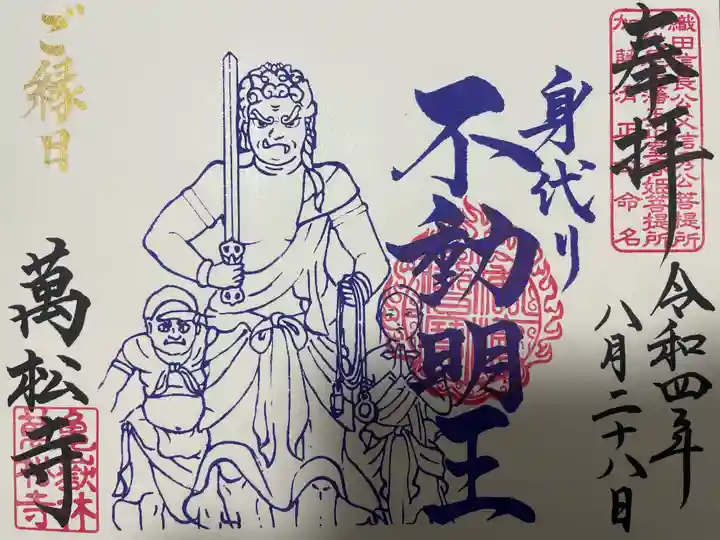 奉拝
織田信長公父信秀公菩提所
加藤清正公命名
令和四年
八月二十八日
身代り
不動明王
ご縁日
萬松寺
亀嶽林
萬松寺